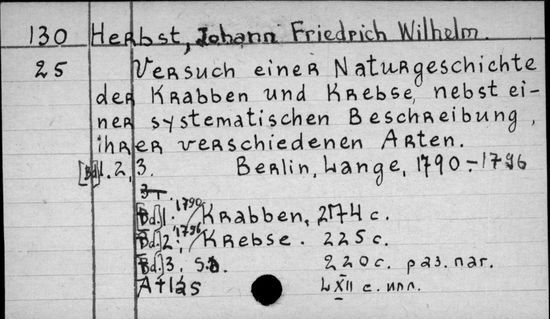 130 Herbst, Johann Friedrich Wilhelm.
25 Versuch einer Naturgeschichte
der Krabben und Krebse, nebst ei-
ner systematischen Beschreibung,
ihrer verschiedenen Arten.
[Bd]1. 2, 3. Berlin, Lange, 1790-1796
[Bd.]1. 1790 Krabben, 274 c.
[Bd.]2. 1796 Krebse. 225 c.
[Bd.]3, 220 c. раз. паг.
Atlas LXII с. илл.